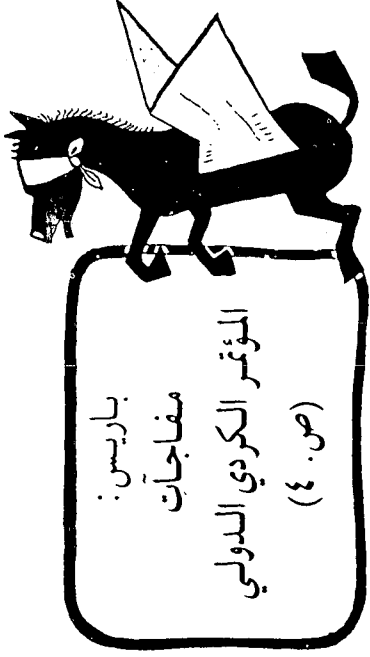 باريس:
مفاجآت
المؤتمر الكردي الدولي
(ص. ٤)